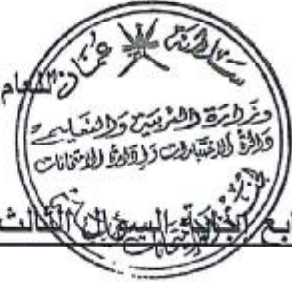 سلطنة عمان للعام
وزارة التربية والتعليم
دائرة الاختبارات وإدارة الامتحانات
تابع إجابة السؤال الثالث